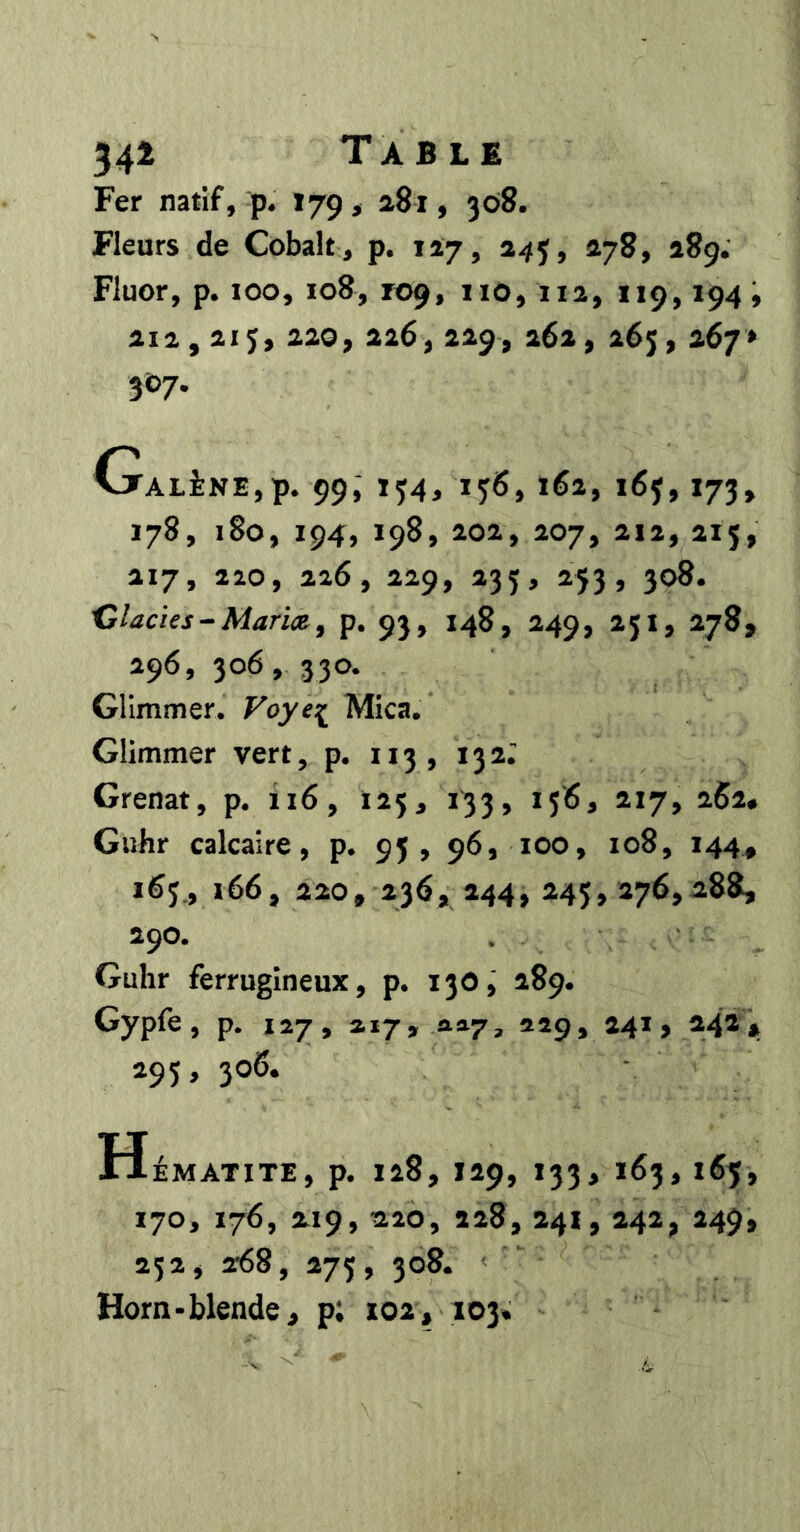 342 TABLE
Fer natif, p. 179, 281, 308.
Fleurs de Cobalt, p. 127, 245, 278, 289.
Fluor, p. 100, 108, 109, 110, 112, 119, 194,
212, 215, 220, 226, 229, 262, 265, 267,
307.
GALÈNE, p. 99, 154, 156, 162, 165, 173,
178, 180, 194, 198, 202, 207, 212, 215,
217, 220, 226, 229, 235, 253, 308.
Glacies-Mariæ, p. 93, 148, 249, 251, 278,
296, 306, 330.
Glimmer. Voyez Mica.
Glimmer vert, p. 113, 132.
Grenat, p. 116, 125, 133, 156, 217, 262.
Guhr calcaire, p. 95, 96, 100, 108, 144,
165, 166, 220, 236, 244, 245, 276, 288,
290.
Guhr ferrugineux, p. 130, 289.
Gypse, p. 127, 217, 227, 229, 241, 242,
295, 306.
HÉMATITE, p. 128, 129, 133, 163, 165,
170, 176, 219, 220, 228, 241, 242, 249,
252, 268, 275, 308.
Horn-blende, p. 102, 103.